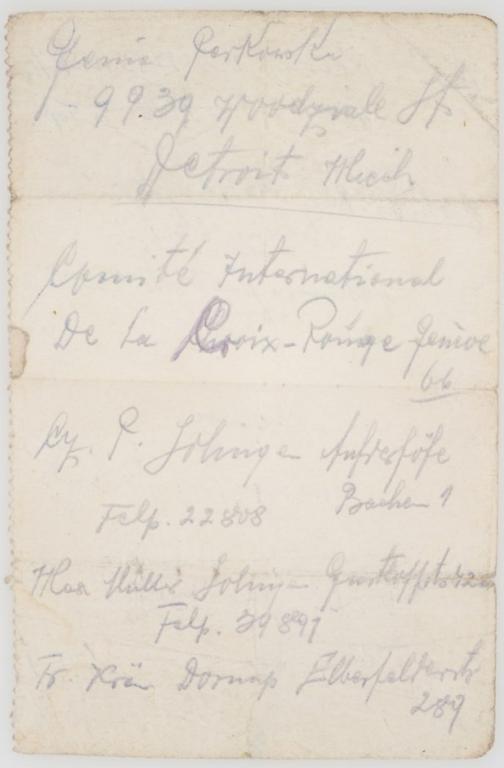 Genia Perkowska
9939 Woodzvale St.
Detroit Mich.
Comité International
De La Croix-Rouge Genève
66
P. Solingen Aufderhöhe
Bachen 1
Felp. 22808
Max Müller Solingen
Felp. 39891
Fr. Dornap Elberfelderstr
289